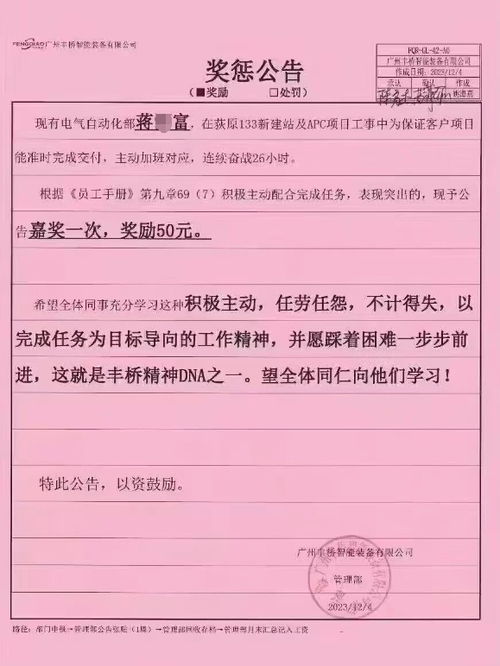 FENGQIAO 广州丰桥智能装备有限公司
FQR-GL-42-A0
广州丰桥智能装备有限公司
作成日期：2023/12/4
承认 确认 作成
奖惩公告
（■奖励 □处罚）
现有电气自动化部蒋 富，在荻原133新建站及APC项目工事中为保证客户项目
能准时完成交付，主动加班对应，连续奋战26小时。
根据《员工手册》第九章69（7）积极主动配合完成任务，表现突出的，现予公
告嘉奖一次，奖励50元。
希望全体同事充分学习这种积极主动，任劳任怨，不计得失，以
完成任务为目标导向的工作精神，并愿踩着困难一步步前
进，这就是丰桥精神DNA之一。望全体同仁向他们学习！
特此公告，以资鼓励。
广州丰桥智能装备有限公司
管理部
2023/12/4
路径：部门申报→管理部公告张贴（1周）→管理部回收存档→管理部月末汇总记入工资